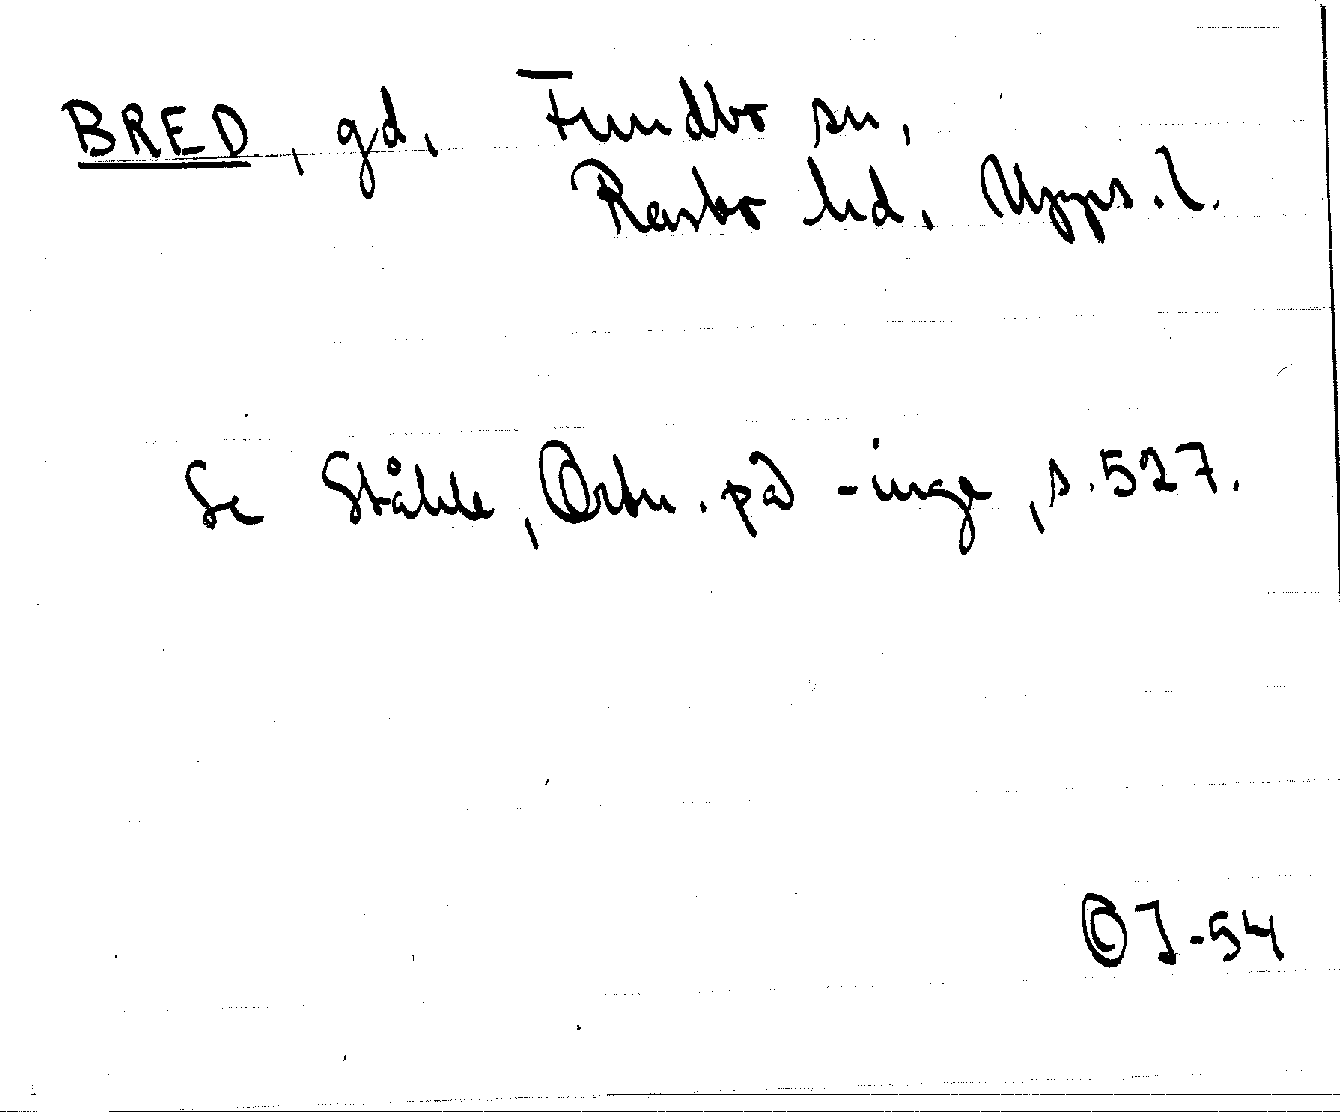 BRED, gd, Fundbo sn,
Rasbo hd, Upps.l.
Se Ståhle, Ortn. på -inge, s.527.
OJ-54